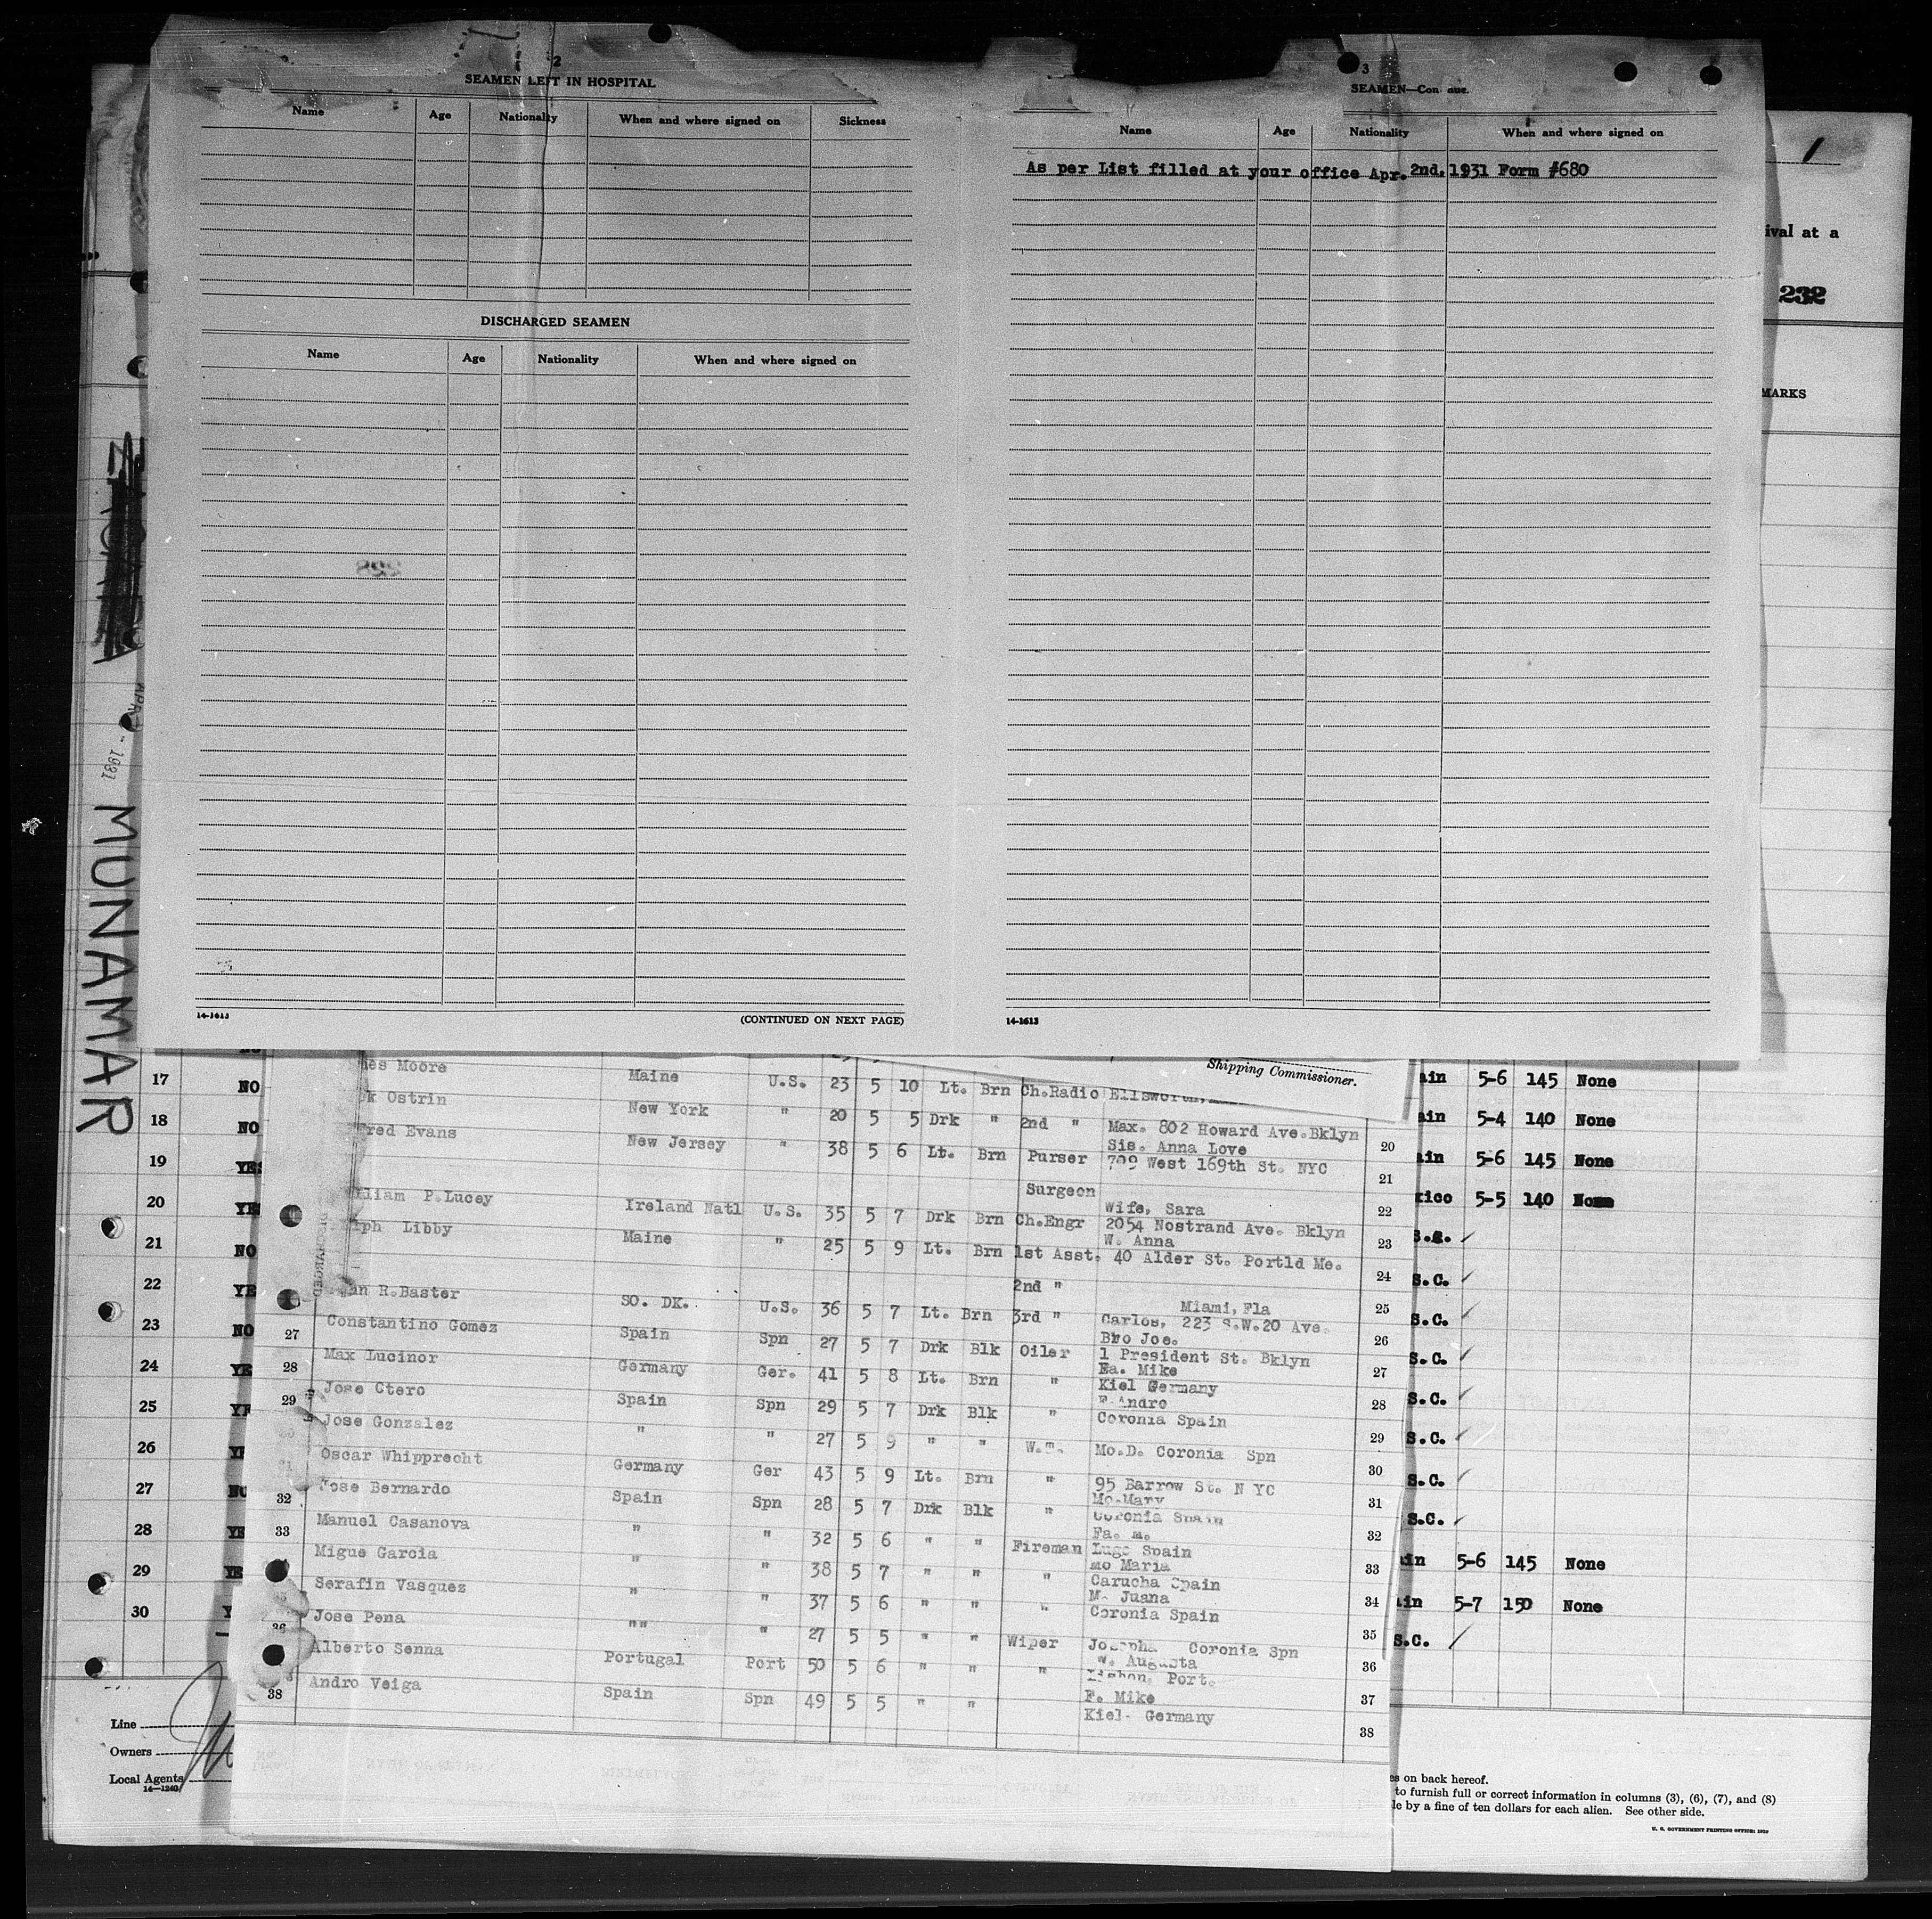 2
SEAMEN LEFT IN HOSPITAL
Name Age Nationality When and where signed on Sickness
DISCHARGED SEAMEN
Name Age Nationality When and where signed on
14-1613
(CONTINUED ON NEXT PAGE)
3
SEAMEN—Con nue.
Name Age Nationality When and where signed on
As per List filled at your office Apr. 2nd. 1931 Form #680
14-1613
1
ival at a
232
MARKS
1931
MUNAMAR
Shipping Commissioner.
Moore Maine U.S. 23 5 10 Lt. Brn Ch.Radio
Ostrin New York " 20 5 5 Drk " 2nd " Max. 802 Howard Ave. Bklyn 20
Sis. Anna Love
Evans New Jersey " 38 5 6 Lt. Brn Purser 709 West 169th St. NYC 21
Surgeon 22
Wife, Sara
P. Lucey Ireland Natl U.S. 35 5 7 Drk Brn Ch.Engr 2054 Nostrand Ave. Bklyn 23
W. Anna
Libby Maine " 25 5 9 Lt. Brn 1st Asst. 40 Alder St. Portld Me. 24
2nd " 25
Miami, Fla
R.Baster SO. DK. U.S. 36 5 7 Lt. Brn 3rd " Carlos, 223 S.W. 20 Ave. 26
Bro Joe.
27 Constantino Gomez Spain Spn 27 5 7 Drk Blk Oiler 1 President St. Bklyn 27
Fa. Mike
28 Max Lucinor Germany Ger. 41 5 8 Lt. Brn " Kiel Germany 28
F Andro
29 Jose Otero Spain Spn 29 5 7 Drk Blk " Coronia Spain 29
Jose Gonzalez " " 27 5 9 " " W.T. Mo.D. Coronia Spn 30
31 Oscar Whipprecht Germany Ger 43 5 9 Lt. Brn " 95 Barrow St. N YC 31
Mo-Mary
32 Jose Bernardo Spain Spn 28 5 7 Drk Blk " Coronia Spain 32
Fa. M.
33 Manuel Casanova " " 32 5 6 " " Fireman Lugo Spain 33
Mo Maria
Migue Garcia " " 38 5 7 " " " Carucha Spain 34
M. Juana
Serafin Vasquez " " 37 5 6 " " " Coronia Spain 35
36 Jose Pena "" " 27 5 5 " " Wiper Josepha Coronia Spn 36
W. Augusta
Alberto Senna Portugal Port 50 5 6 " " " Lisbon, Port. 37
F. Mike
38 Andro Veiga Spain Spn 49 5 5 " " Kiel- Germany 38
17 NO
18 NO
19 YES
20 YE
21 NO
22 YE
23 NO
24 YE
25 YE
26 YE
27 NO
28 YE
29 YE
30 Y
ain 5-6 145 None
ain 5-4 140 None
ain 5-6 145 None
xico 5-5 140 None
S.C.
S.C.
S.C.
S.C.
S.C.
S.C.
S.C.
S.C.
in 5-6 145 None
in 5-7 150 None
S.C.
Line
Owners
Local Agents
14-1240
es on back hereof.
to furnish full or correct information in columns (3), (6), (7), and (8)
le by a fine of ten dollars for each alien. See other side.
U. S. GOVERNMENT PRINTING OFFICE: 1930